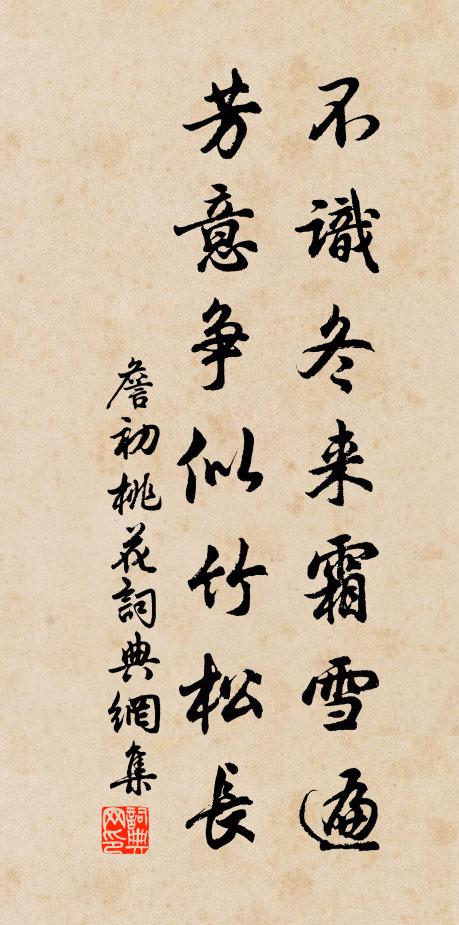 不識冬来霜雪遍
芳意争似竹松長
詹初桃花詞典網集
詞典网印